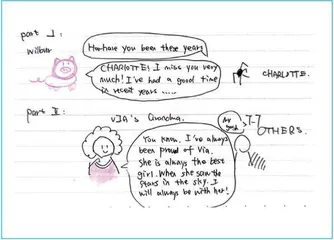 part I:
Wilbur
How have you been these years
CHARLOTTE! I miss you very
much! I've had a good time
in recent years .....
CHARLOTTE.
part II:
VIA's Grandma.
My god
T-T
OTHERS.
You know, I've always
been proud of Via.
She is always the best
girl. When she saw the
stars in the sky. I
will always be with her!